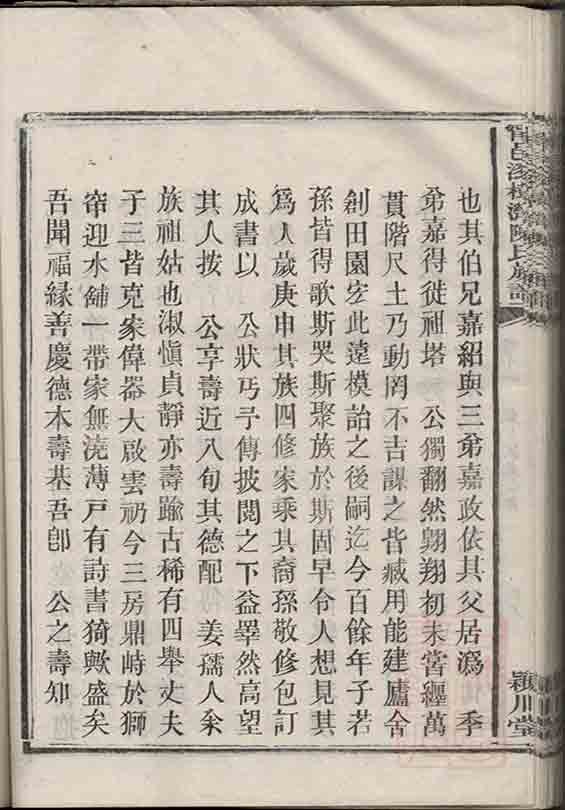 也其伯兄嘉紹與三弟嘉政依其父居溈　季
弟嘉得從祖塔　公獨翻然翺翔初未嘗纏萬
貫階尺土乃動罔不吉謀之皆臧用能建廬舍
創田園宏此遠模詒之後嗣迄今百餘年子若
孫皆得歌斯哭斯聚族於斯固早令人想見其
爲人歲庚申其族四修家乘其裔孫敬修包訂
成書以　公狀丐予傳披閱之下益睪然高望
其人按　公享壽近八旬其德配　姜孺人釆
族祖姑也淑愼貞靜亦壽踰古稀有四舉丈夫
子三皆克家偉器大啟雲礽今三房鼎峙於獅
帘迎水舖一帶家無澆薄戸有詩書猗歟盛矣
吾聞福緣善慶德本壽基吾卽　公之壽知
邑溈檀灣陳氏族譜
潁川堂